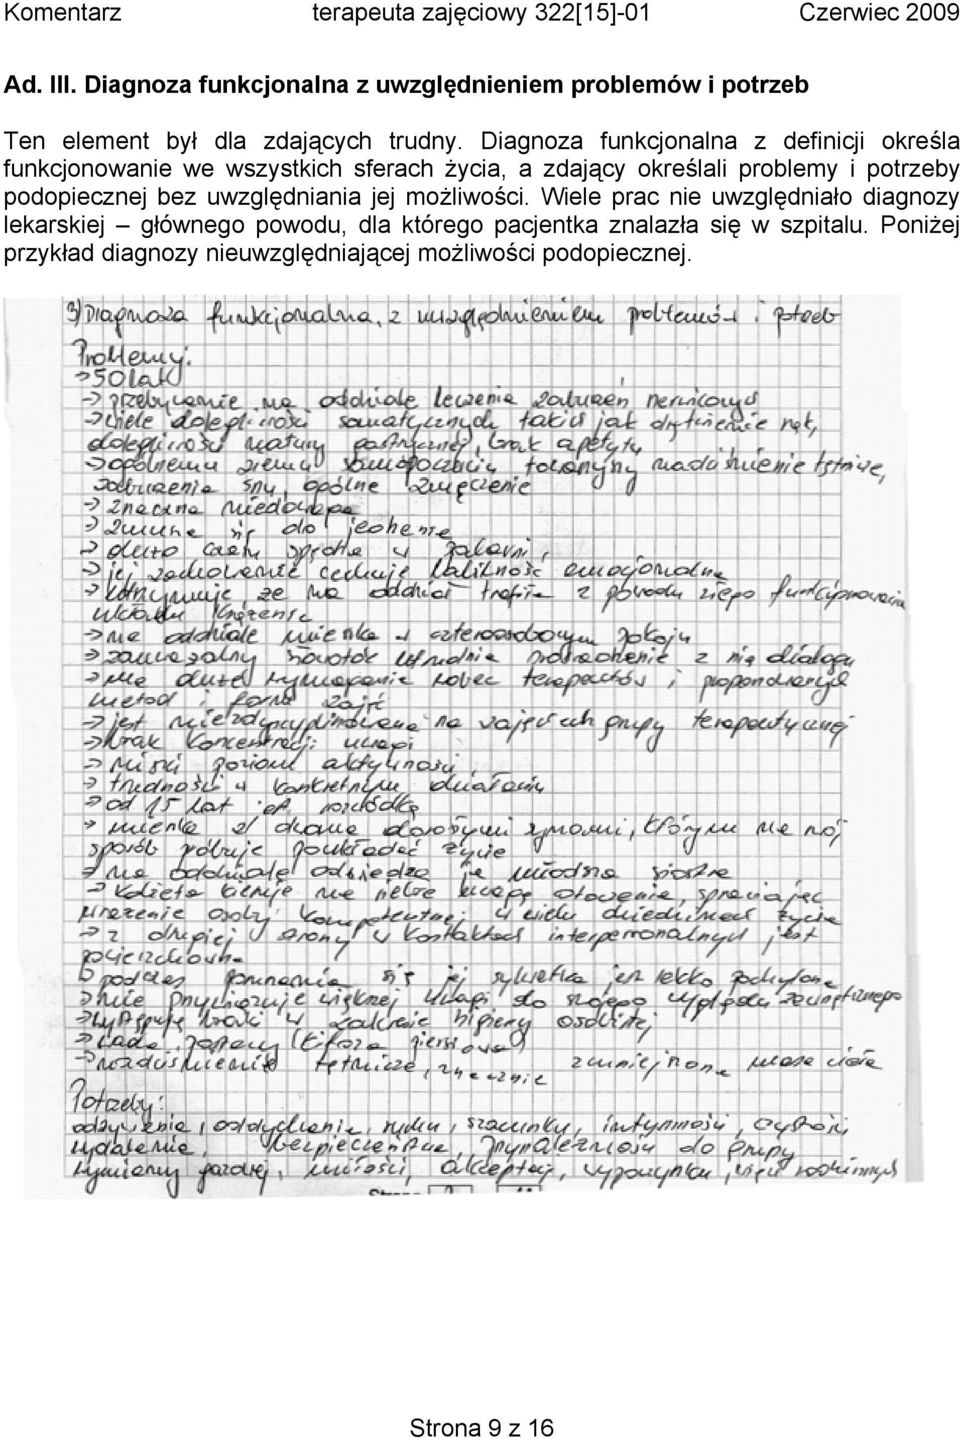 Komentarz terapeuta zajęciowy 322[15]-01 Czerwiec 2009
Ad. III. Diagnoza funkcjonalna z uwzględnieniem problemów i potrzeb
Ten element był dla zdających trudny. Diagnoza funkcjonalna z definicji określa
funkcjonowanie we wszystkich sferach życia, a zdający określali problemy i potrzeby
podopiecznej bez uwzględniania jej możliwości. Wiele prac nie uwzględniało diagnozy
lekarskiej – głównego powodu, dla którego pacjentka znalazła się w szpitalu. Poniżej
przykład diagnozy nieuwzględniającej możliwości podopiecznej.
3) Diagnoza funkcjonalna, z uwzględnieniem problemów i potrzeb
Problemy:
→ 50 lat
→ przebywanie na oddziale leczenia zaburzeń nerwicowych
→ wiele dolegliwości somatycznych takich jak drętwienie rąk,
dolegliwości natury gastrycznej, brak apetytu
→ ogólnemu złemu samopoczuciu towarzyszy nadciśnienie tętnicze,
zaburzenia snu, ogólne zmęczenie
→ znaczna niedowaga
→ zmusza się do jedzenia
→ dużo czasu spędza w żałobni,
→ jej zachowanie cechuje labilność emocjonalna
→ utrzymuje, że na oddział trafiła z powodu złego funkcjonowania
układu krążenia
→ na oddziale mieszka w czteroosobowym pokoju
→ zauważalny słowotok utrudnia prowadzenie z nią dialogu
→ ma duże wymagania wobec terapeutów i proponowanych
metod i form zajęć
→ jest niezdyscyplinowana na zajęciach grupy terapeutycznej
→ brak koncentracji uwagi
→ niski poziom aktywności
→ trudności w konkretnym działaniu
→ od 15 lat po rozwódka
→ mieszka z dwoma dorosłymi synami, którym na swój
sposób próbuje poukładać życie
→ na oddziale odwiedza ją młodsza siostra
→ kobieta kieruje na siebie uwagę otoczenia, sprawiając
wrażenie osoby kompetentnej w wielu dziedzinach życia
→ z drugiej strony w kontaktach interpersonalnych jest
podczas poruszania się jej sylwetka jest lekko pochylona
→ nie przywiązuje większej uwagi do swojego wyglądu zewnętrznego
→ występują braki w zakresie higieny osobistej
→ wada postawy (kifoza piersiowa)
→ nadciśnienie tętnicze, znacznie zmniejszona masa ciała
Potrzeby:
odżywienia, oddychania, ruchu, szacunku, intymności, czystości,
wydalania, bezpieczeństwa, przynależności do grupy
wymiany gazowej, miłości, akceptacji, wypoczynku, więzi rodzinnych
Strona 9 z 16